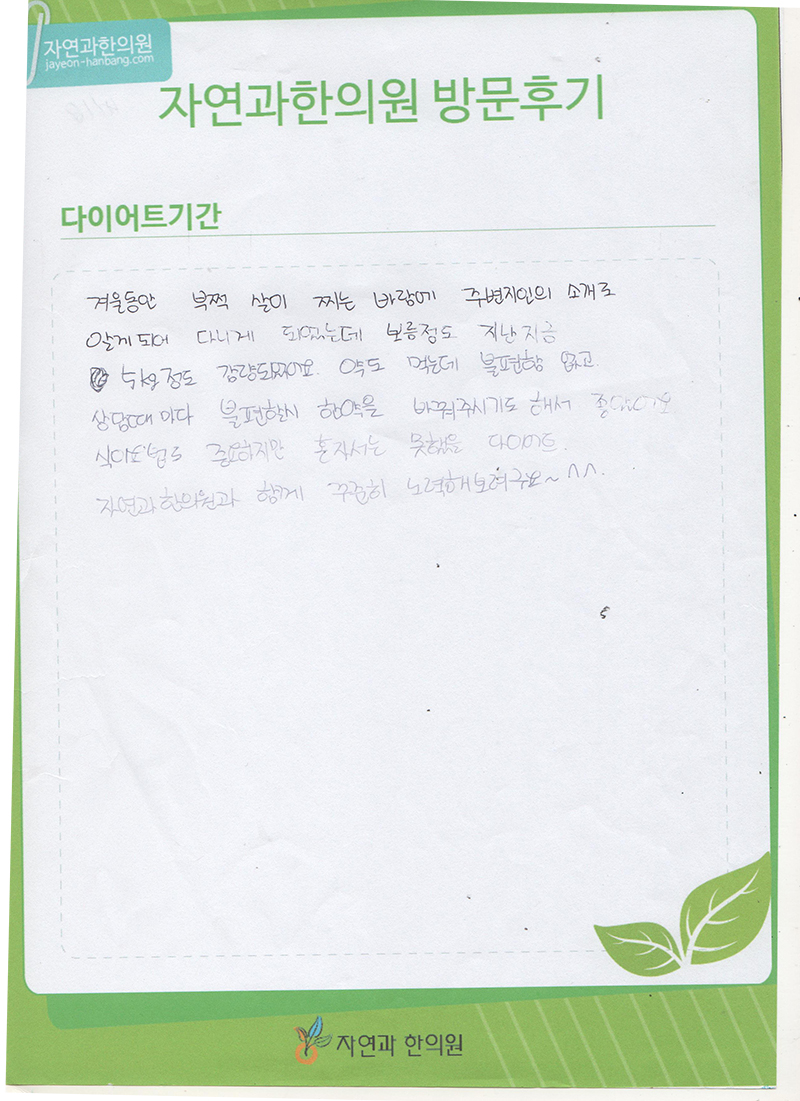 자연과한의원
jayeon-hanbang.com
자연과한의원 방문후기
다이어트기간
겨울동안 부쩍 살이 찌는 바람에 주변지인의 소개로
알게되어 다니게 되었는데 보름정도 지난지금
5kg정도 감량되었어요. 약도 먹는데 불편함 없고.
상담때마다 불편할시 한약을 바꿔주시기도 해서 좋았어요
식이요법도 중요하지만 혼자서는 못했을 다이어트.
자연과한의원과 함께 꾸준히 노력해보려구요~^^.
자연과 한의원